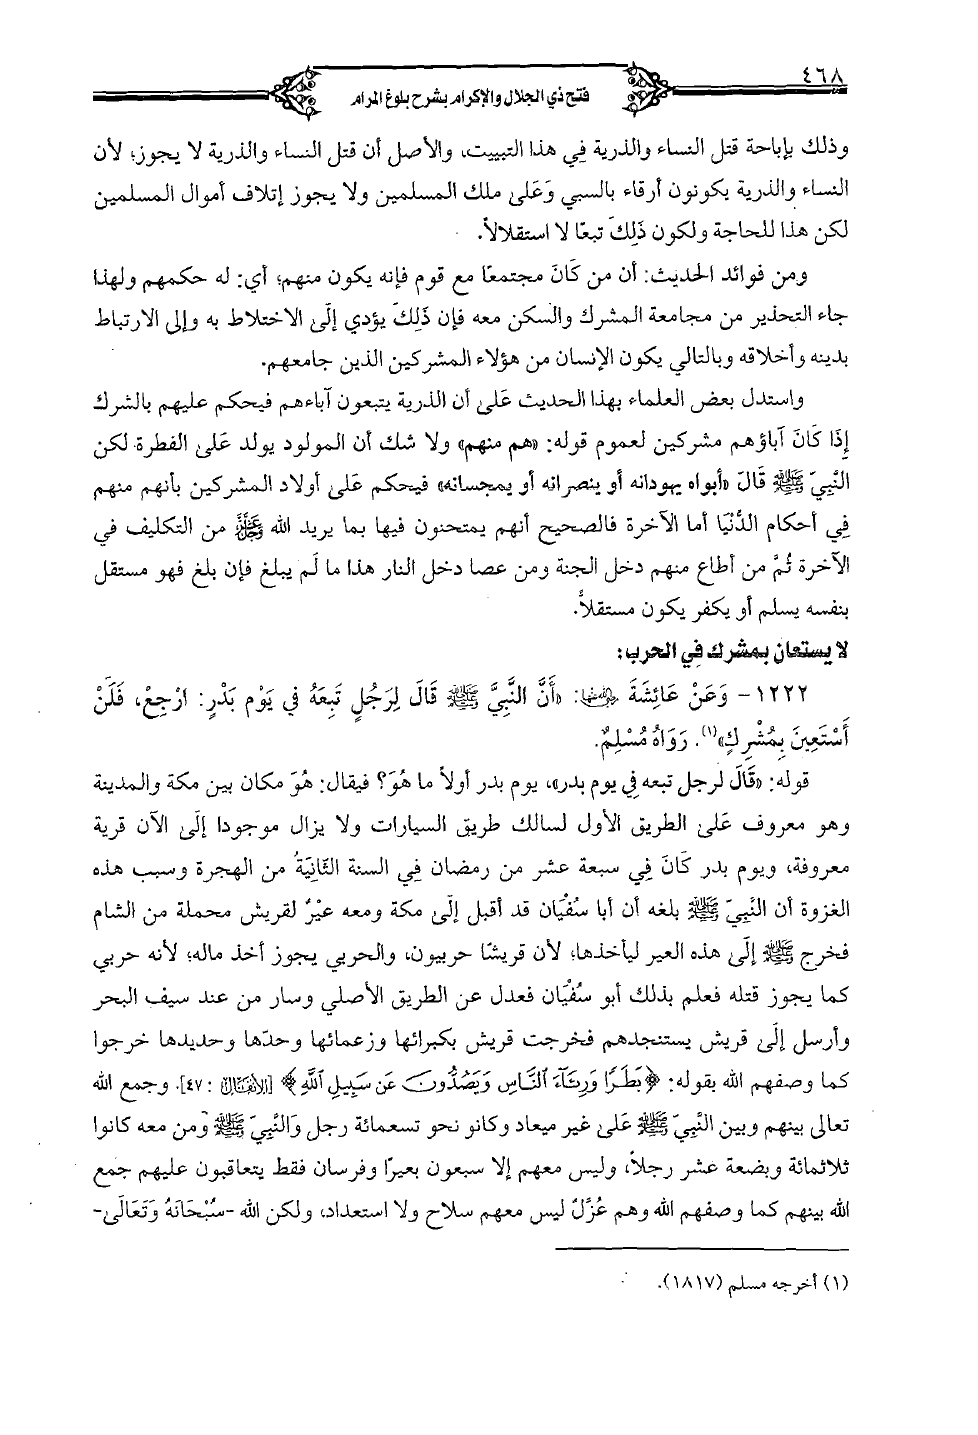 ٤٦٨
فتح ذي الجلال والإكرام بشرح بلوغ المرام
وذلك بإباحة قتل النساء والذرية في هذا التبييت، والأصل أن قتل النساء والذرية لا يجوز؛ لأن
النساء والذرية يكونون أرقاء بالسبي وَعَلىٰ ملك المسلمين ولا يجوز إتلاف أموال المسلمين
لكن هذا للحاجة ولكون ذَلِكَ تبعًا لا استقلالاً.
ومن فوائد الحديث: أن من كَانَ مجتمعًا مع قوم فإنه يكون منهم؛ أي: له حكمهم ولهذا
جاء التحذير من مجامعة المشرك والسكن معه فإن ذَلِكَ يؤدي إلَى الاختلاط به وإلى الارتباط
بدينه وأخلاقه وبالتالي يكون الإنسان من هؤلاء المشركين الذين جامعهم.
واستدل بعض العلماء بهذا الحديث عَلىٰ أن الذرية يتبعون آباءهم فيحكم عليهم بالشرك
إِذَا كَانَ آباؤهم مشركين لعموم قوله: «هم منهم» ولا شك أن المولود يولد عَلىٰ الفطرة لكن
النَّبِيّ ﷺ قَالَ «أبواه يهودانه أو ينصرانه أو يمجسانه» فيحكم عَلىٰ أولاد المشركين بأنهم منهم
فِي أحكام الدُّنْيَا أما الآخرة فالصحيح أنهم يمتحنون فيها بما يريد الله ﷻ من التكليف في
الآخرة ثُمَّ من أطاع منهم دخل الجنة ومن عصا دخل النار هذا ما لَم يبلغ فإن بلغ فهو مستقل
بنفسه يسلم أو يكفر يكون مستقلاً.
لا يستعان بمشرك في الحرب:
١٢٢٢- وَعَنْ عَائِشَةَ رضي الله عنها: «أَنَّ النَّبِيَّ ﷺ قَالَ لِرَجُلٍ تَبِعَهُ فِي يَوْمِ بَدْرٍ: ارْجِعْ، فَلَنْ
أَسْتَعِينَ بِمُشْرِكٍ»(١). رَوَاهُ مُسْلِمٌ.
قوله: «قَالَ لرجل تبعه في يوم بدر»، يوم بدر أولاً ما هُوَ؟ فيقال: هُوَ مكان بين مكة والمدينة
وهو معروف عَلىٰ الطريق الأول لسالك طريق السيارات ولا يزال موجودا إلَى الآن قرية
معروفة، ويوم بدر كَانَ فِي سبعة عشر من رمضان فِي السنة الثَّانِيَةُ من الهجرة وسبب هذه
الغزوة أن النَّبِيّ ﷺ بلغه أن أبا سُفْيَان قد أقبل إلَى مكة ومعه عيْرٌ لقريش محملة من الشام
فخرج ﷺ إلَى هذه العير ليأخذها؛ لأن قريشًا حربيون، والحربي يجوز أخذ ماله؛ لأنه حربي
كما يجوز قتله فعلم بذلك أبو سُفْيَان فعدل عن الطريق الأصلي وسار من عند سيف البحر
وأرسل إلَى قريش يستنجدهم فخرجت قريش بكبرائها وزعمائها وحدّها وحديدها خرجوا
كما وصفهم الله بقوله: ﴿بَطَرًا وَرِئَآءَ ٱلنَّاسِ وَيَصُدُّونَ عَن سَبِيلِ ٱللَّهِ﴾ [الأنفال: ٤٧]. وجمع الله
تعالى بينهم وبين النَّبِيّ ﷺ عَلىٰ غير ميعاد وكانو نحو تسعمائة رجل وَالنَّبِيّ ﷺ ومن معه كانوا
ثلاثمائة وبضعة عشر رجلاً، وليس معهم إلا سبعون بعيرًا وفرسان فقط يتعاقبون عليهم جمع
الله بينهم كما وصفهم الله وهم عُزَّلٌ ليس معهم سلاح ولا استعداد، ولكن الله -سُبْحَانَهُ وَتَعَالَى-
(١) أخرجه مسلم (١٨١٧).